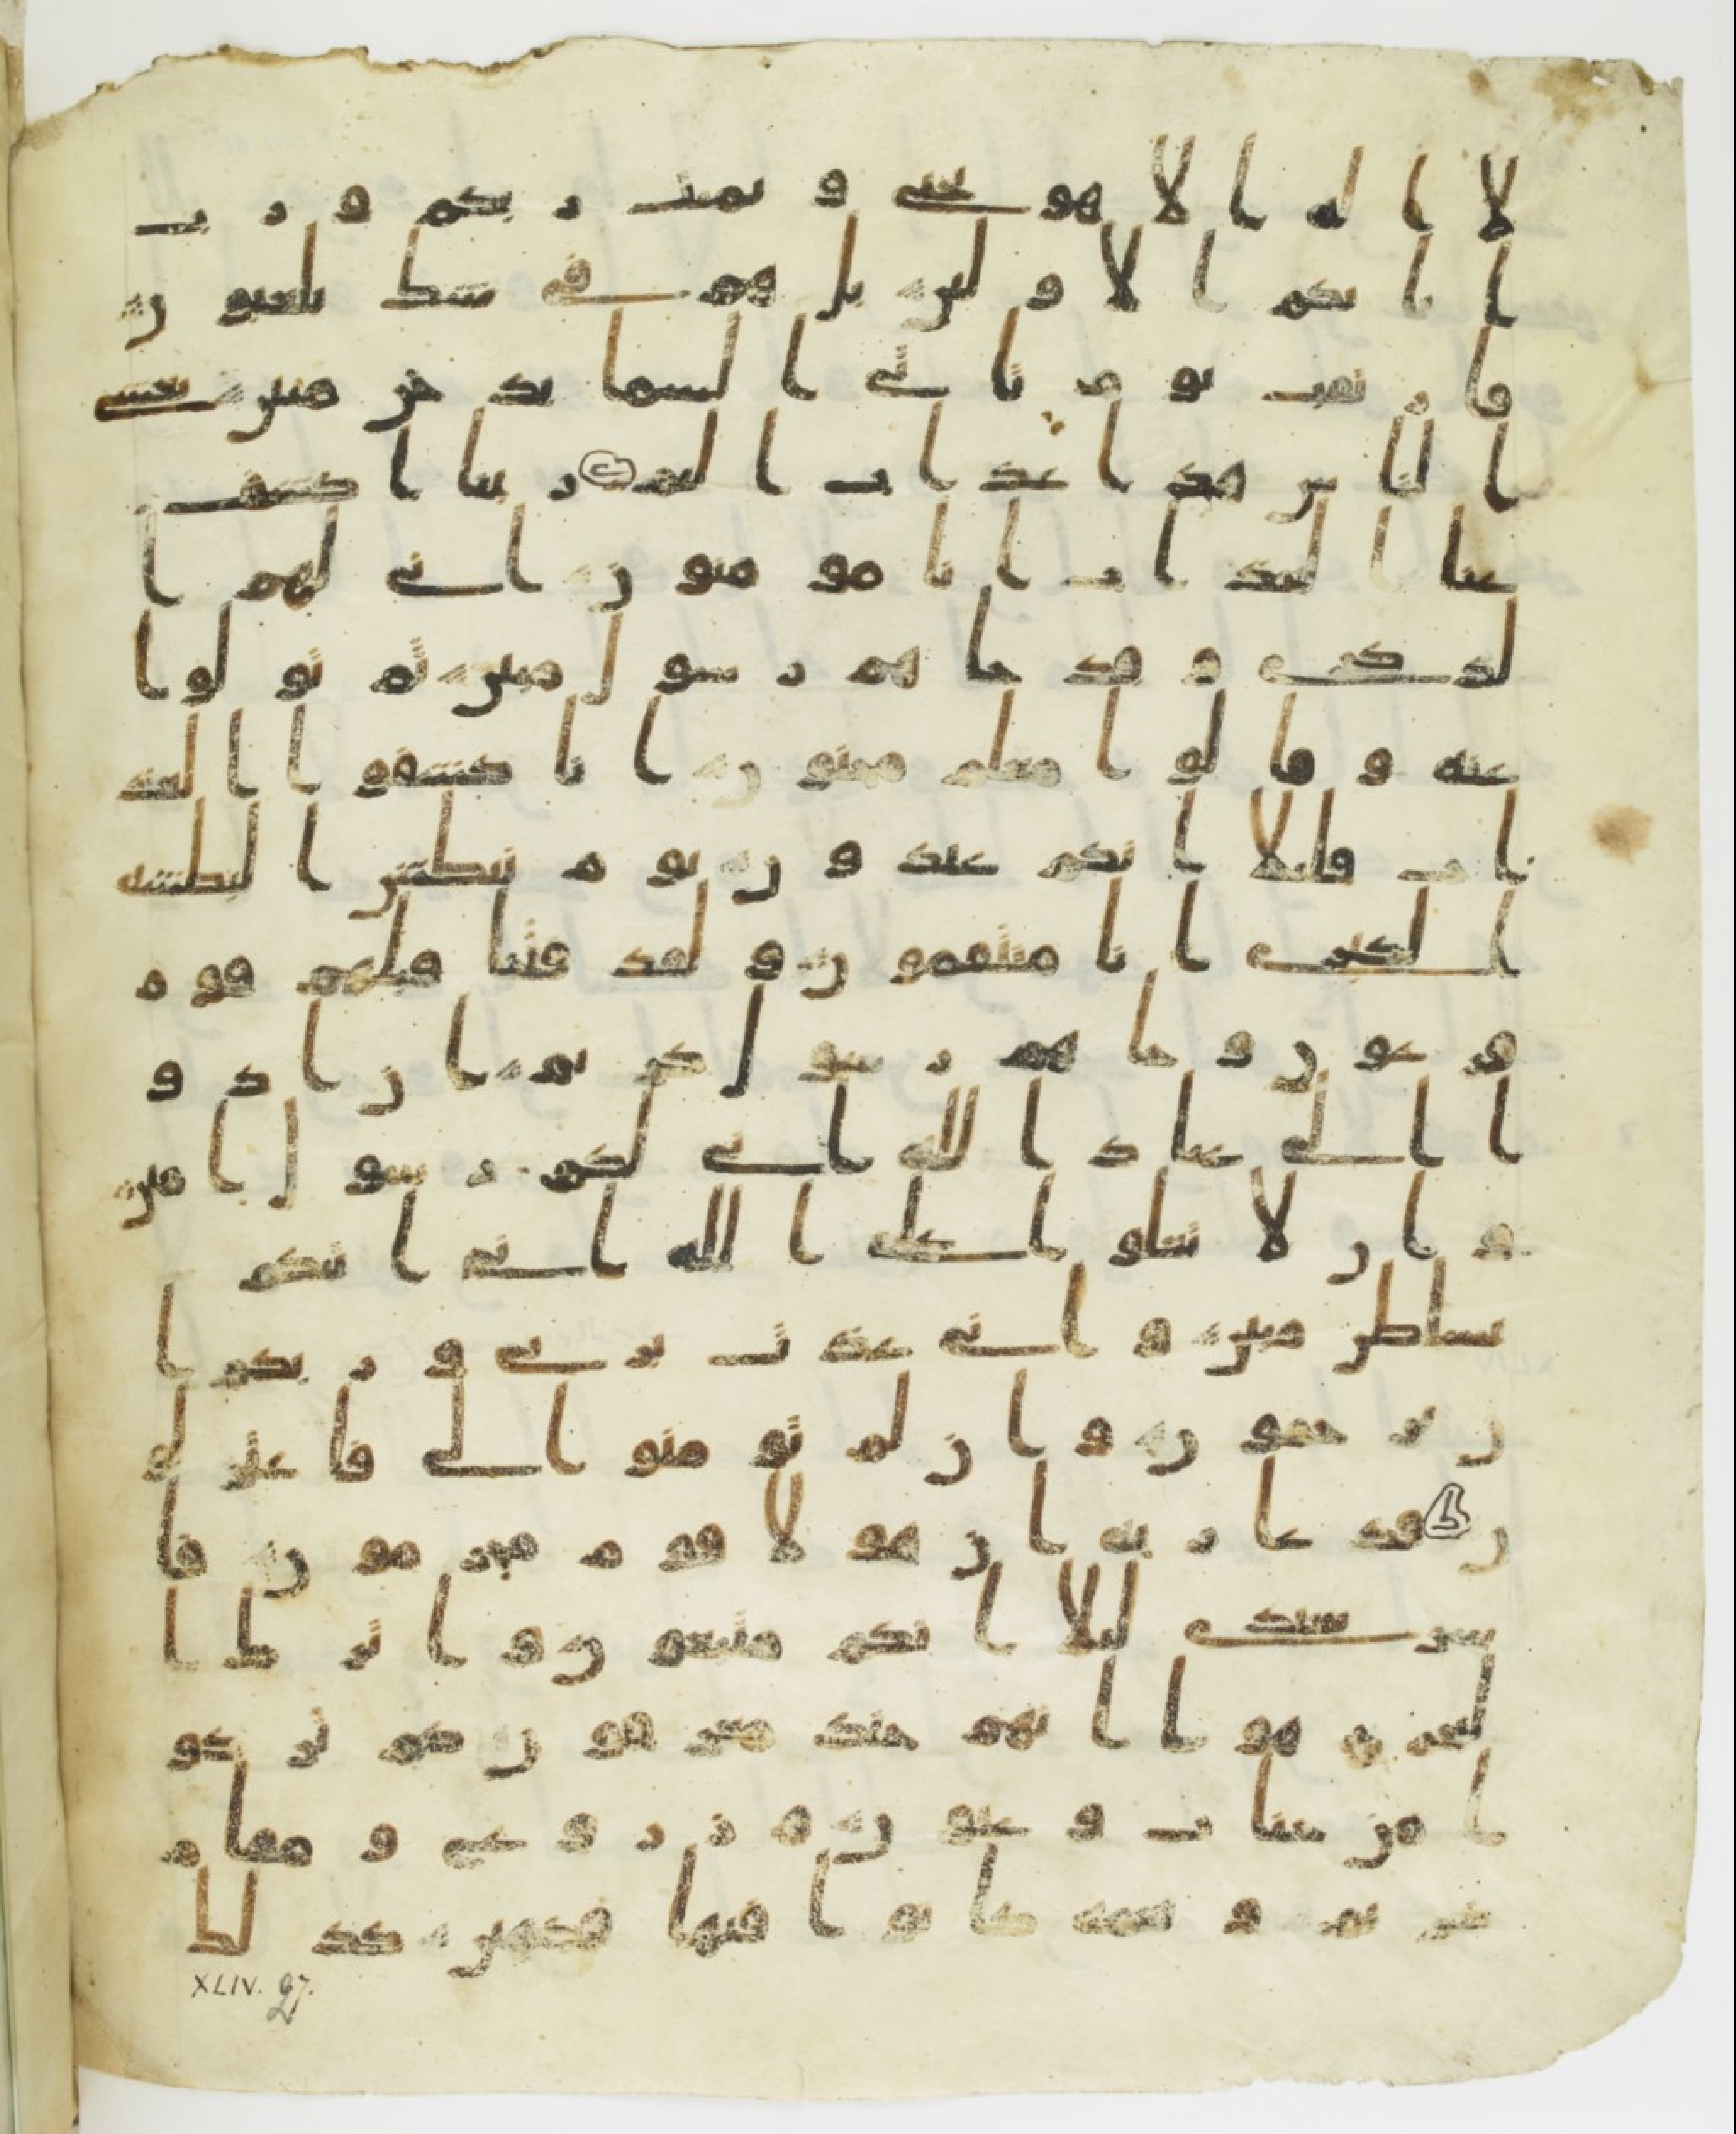 لا اله الا هو يحيي و يميت ربكم و رب
ابايكم الاولين بل هم في شك يلعبون
فارتقب يوم تاتي السما بدخن مبين يغشي
الناس هذا عذاب اليم ربنا اكشف
عنا العذاب انا مومنون اني لهم ا
لذكري و قد جاهم رسول مبين ثم تولوا
عنه و قالوا معلم مجنون انا كشفوا العذ
اب قليلا انكم عيدون يوم نبطش البطشه
الكبري انا منتقمون و لقد فتنا قبلهم قوم
فرعون و جاهم رسول كريم ان ادو
ا الي عباد الله اني لكم رسول امين
و ان لا تعلوا علي الله اني اتيكم
بسلطن مبين و اني عذت بربي و ربكم ا
ن ترجمون و ان لم تومنوا لي فاعتزلو
ن فدعا ربه ان هولا قوم مجرمون فا
سر بعبدي ليلا انكم متبعون و اترك ا
لبحر رهوا انهم جند مغرقون كم تركو
ا من جنات و عيون و زروع و مقام
كريم و نعمه كانوا فيها فكهين كذلك
XLIV. 27.